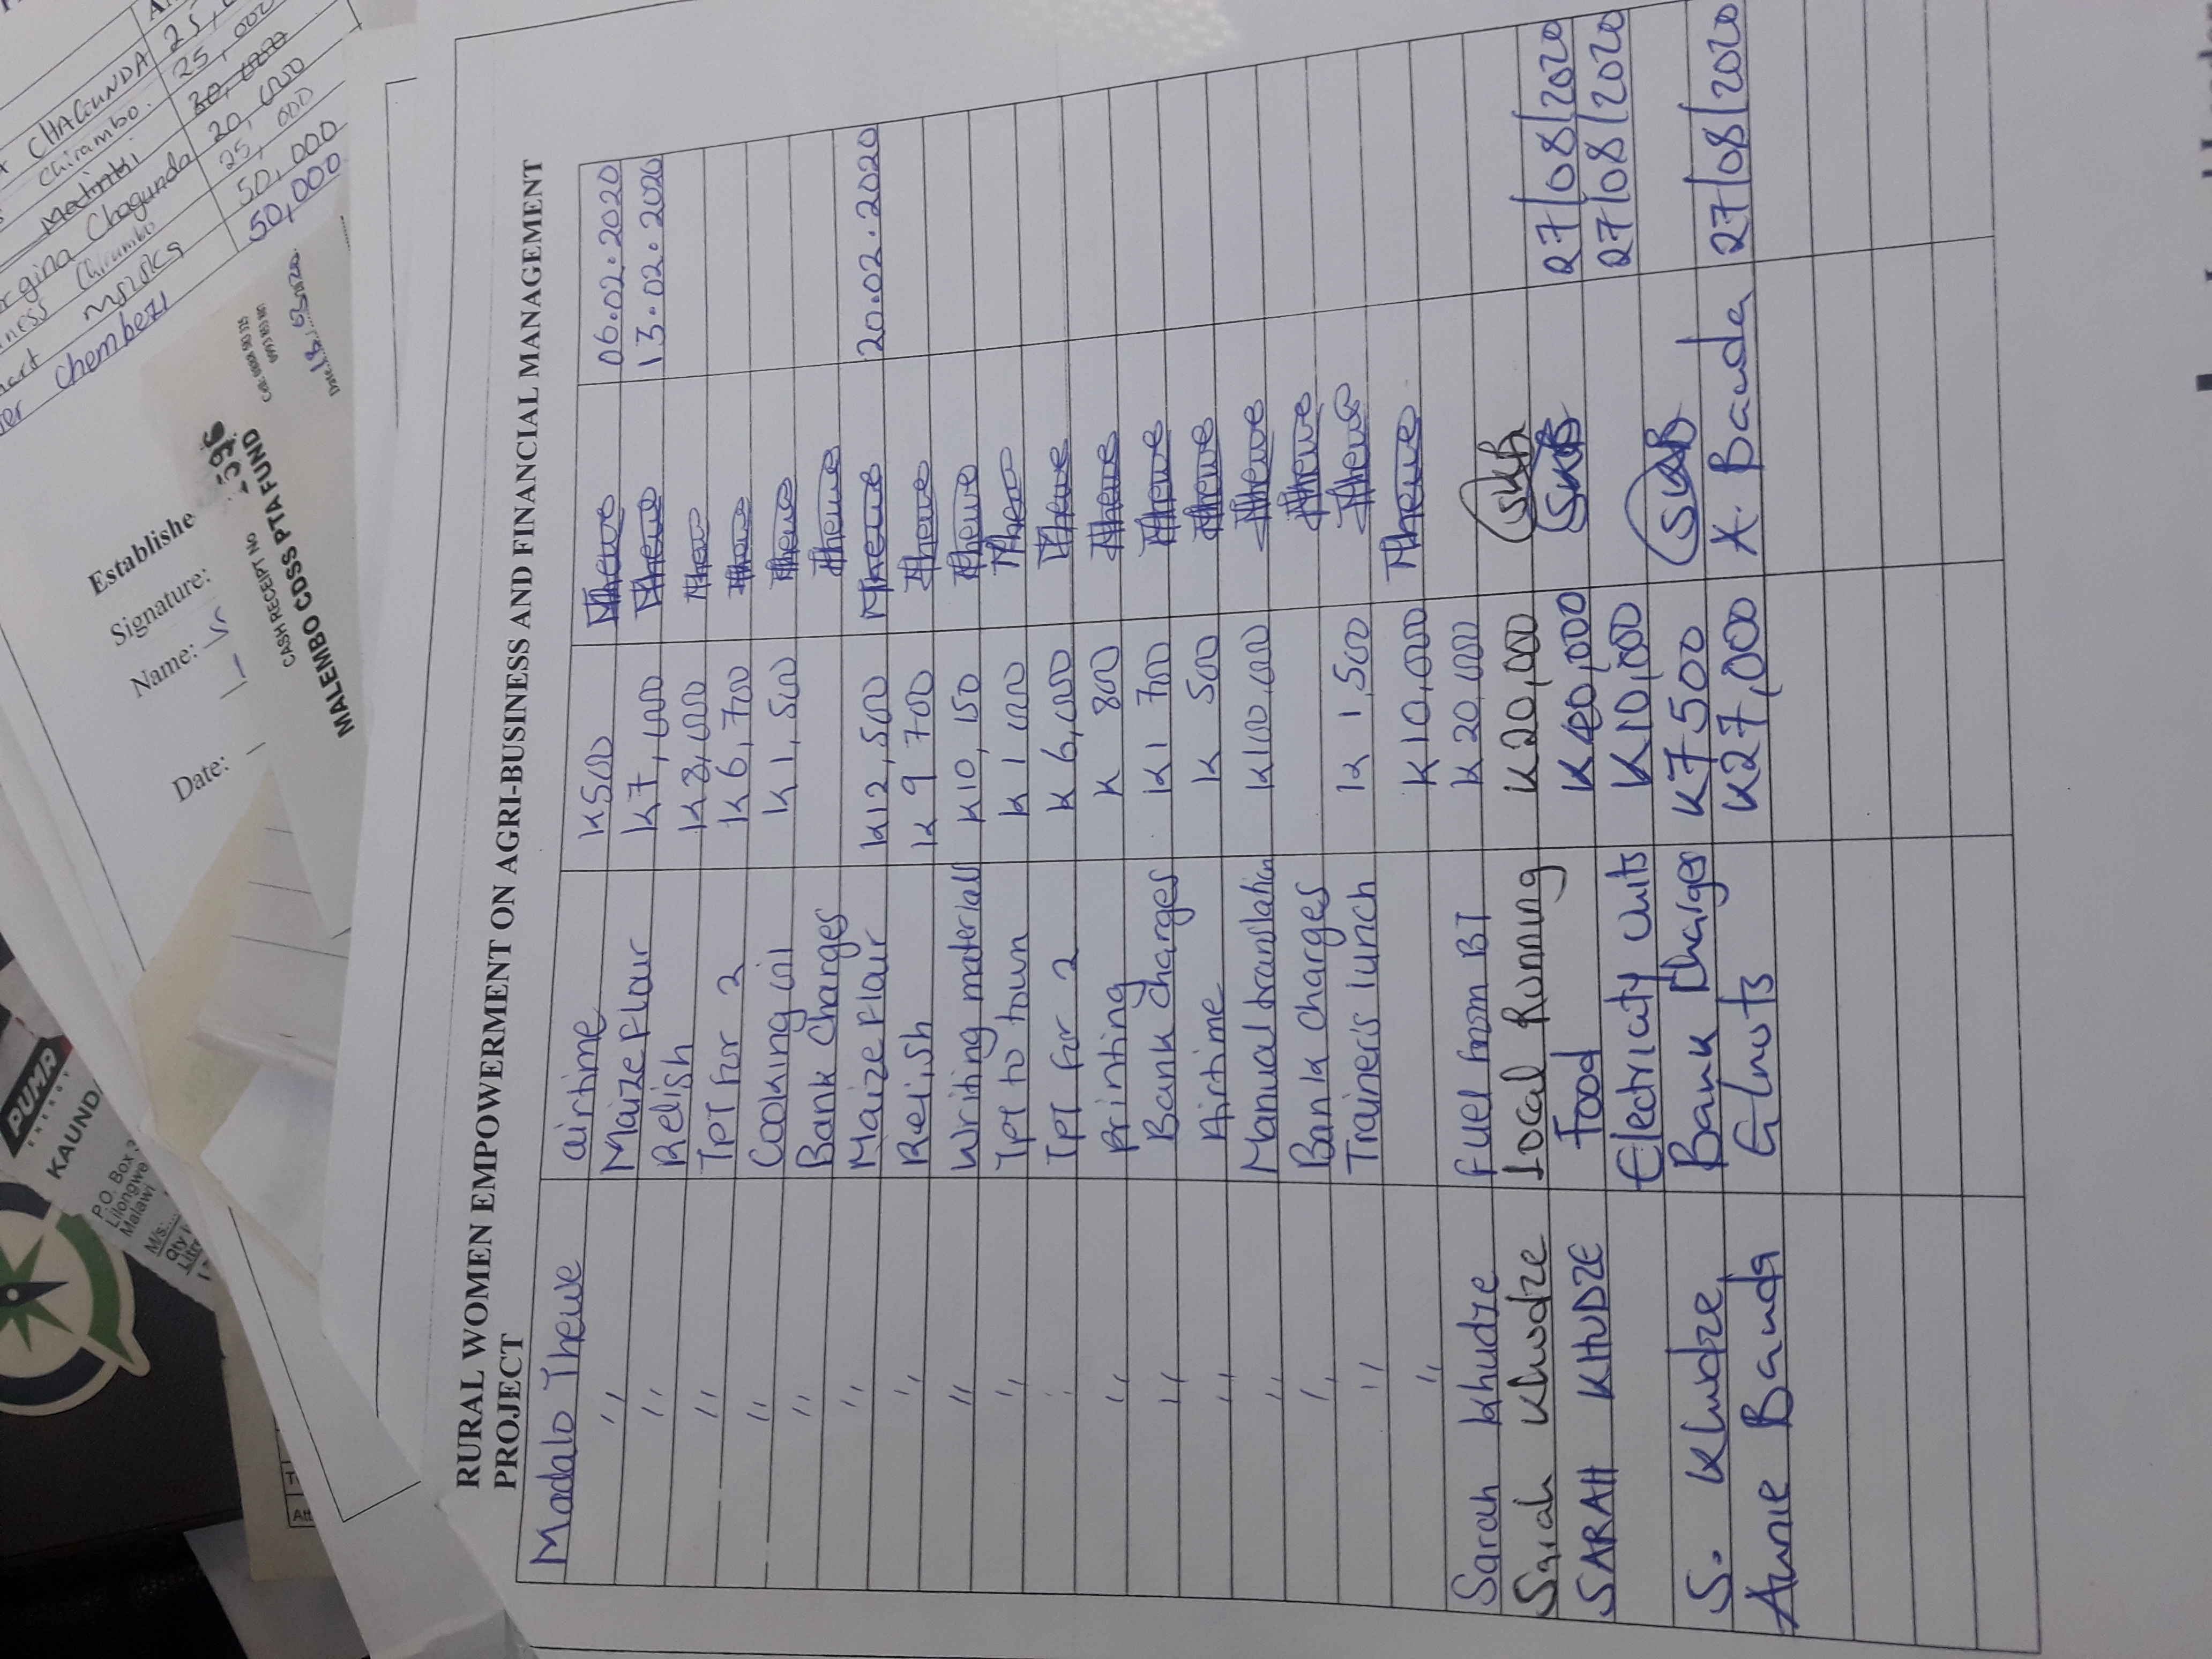 RURAL WOMEN EMPOWERMENT ON AGRI-BUSINESS AND FINANCIAL MANAGEMENT
PROJECT
Madalo Thewe airtime K500 Thewe 06.02.2020
" Maize Flour K7,000 Thewe 13.02.2020
" Relish K8,000 Thewe
" TPT for 2 K6,700 Thewe
" Cooking oil K1,500 Thewe
" Bank Charges Thewe
" Maize Flour K12,500 Thewe 20.02.2020
" Relish K9 700 Thewe
" Writing materials K10,150 Thewe
" Tpt to town K1 000 Thewe
" TPT for 2 K6,000 Thewe
" Printing K 800 Thewe
" Bank Charges K1 700 Thewe
" Airtime K 500 Thewe
" Manual translation K100,000 Thewe
" Bank Charges Thewe
" Trainer's lunch K1,500 Thewe
" K10,000 Thewe
Sarah Khudze Fuel from BT K 20,000
Sarah Khudze Local Running K20,000 SKB 27/08/2020
SARAH KHUDZE Food K40,000 SKB 27/08/2020
Electricity Units K10,000
S. Khudze Bank Charges K7500 SKB
Annie Banda G/nuts K27,000 A. Banda 27/08/2020
CHAGUNDA 25,
Chirambo. 25,000
20,000
Chagunda 20,000
Chirambo 25,000
50,000
Chembezi 50,000
Establishe
Signature:
Name:
Date:
MALEMBO CDSS PTA FUND
CASH RECEIPT NO
PUMA
ENERGY
KAUND
P.O. Box 3
Lilongwe
Malawi
M/s:
Qty